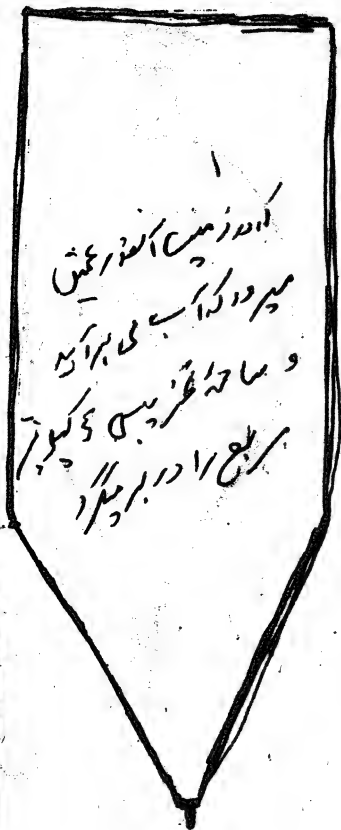 ۱
که در زمین آنقدر عمیق
میرود که آب می برآید
و ساحهٔ تقریبی ۶ کیلومتر
مربع را در بر میگیرد